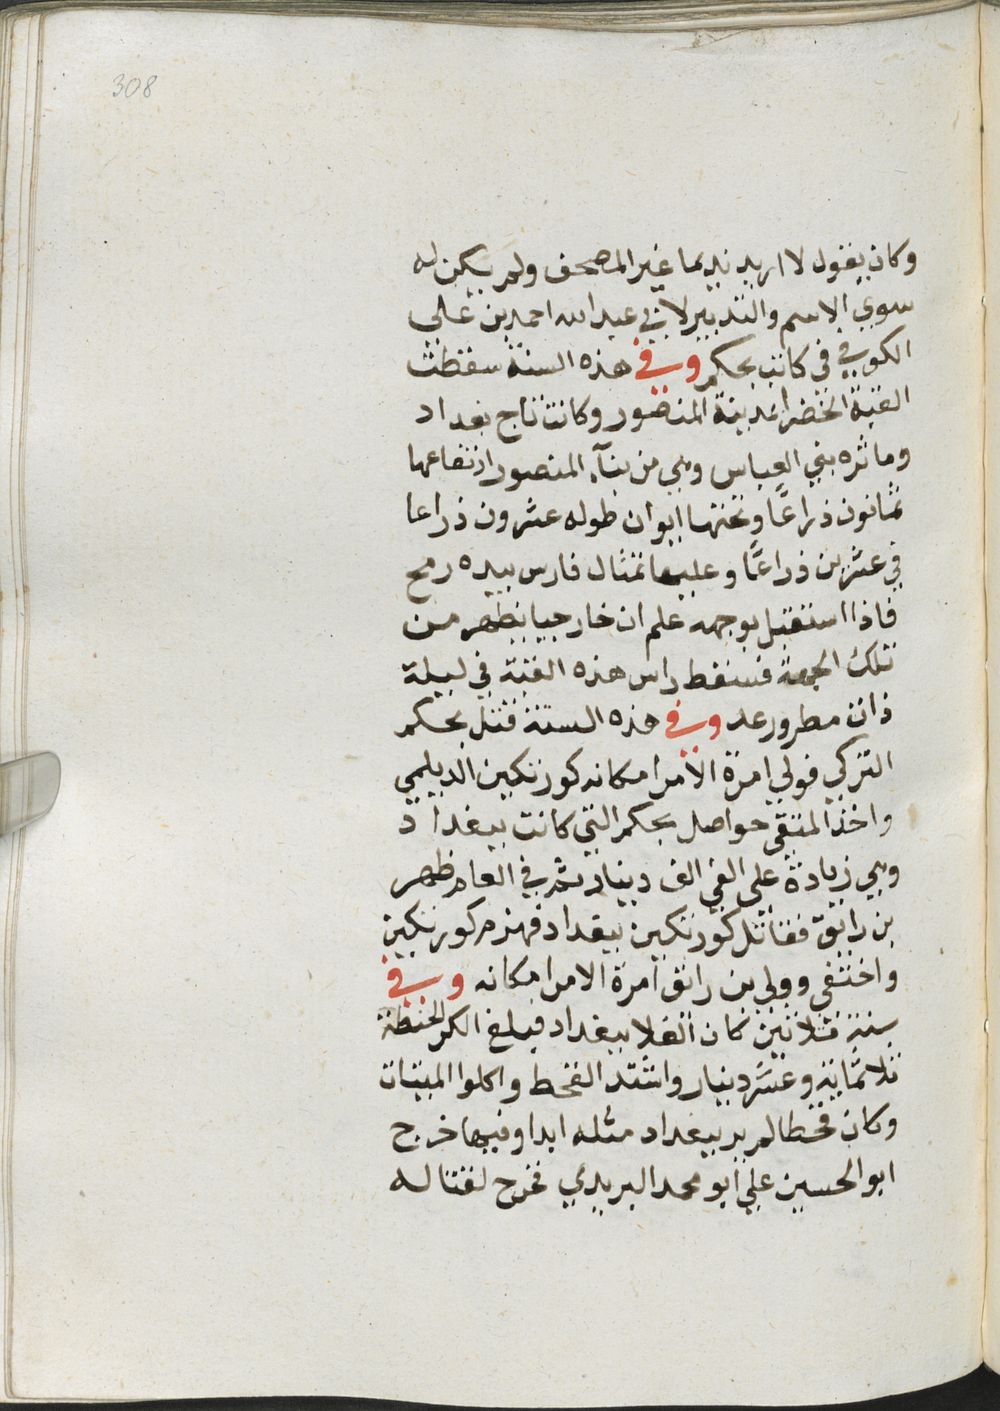 308
وكان يقول لا اريد نديما غير المصحف ولم يكن له
سوي الاسم والتدبير لابي عبد الله احمد بن علي
الكوفي في كاتب بحكم وفي هذه السنة سقطت
القبة الخضرا بمدينة المنصور وكانت تاج بغداد
وماثره بني العباس وهي من بنآء المنصور ارتفاعها
ثمانون ذراعًا وتحتها ايوان طوله عشرون ذراعا
في عشرين ذراعًا وعليها تمثال فارس بيده رمح
فاذا استقبل بوجهه علم ان خارجيا يظهر من
تلك الجهة فسقط راس هذه القبة في ليلة
ذات مطر ورعد وفي هذه السنة قتل بحكم
التركي فولي امرة الامرا مكانه كورتكين الديلمي
واخذ المتقي حواصل بحكم التي كانت ببغداد
وهي زيادة علي الفي الف دينار ثم في العام ظهر
بن رايق فقاتل كورتكين ببغداد فهزم كورتكين
واختفي وولي بن رايق امرة الامرا مكانه وفي
سنة ثلاثين كان الغلا ببغداد فبلغ الكر الحنطة
ثلاثماية وعشر دينار واشتد القحط واكلوا الميتات
وكان قحطا لم ير ببغداد مثله ابدا وفيها خرج
ابو الحسين علي ابو محمد البريدي فخرج لقتاله